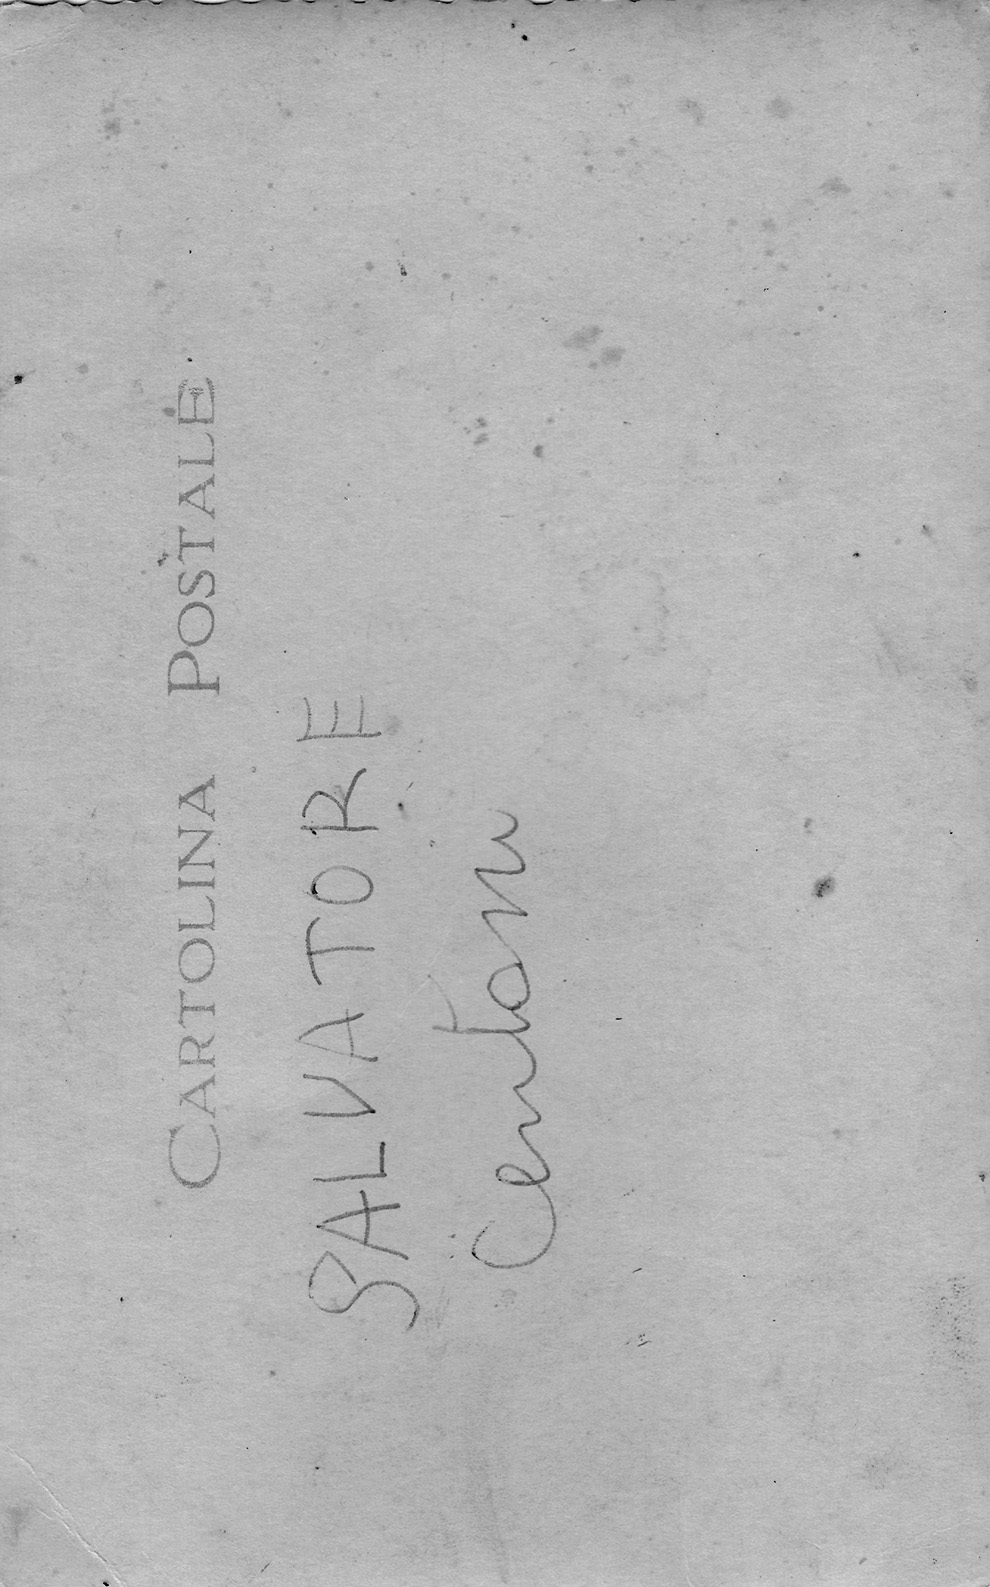 CARTOLINA POSTALE
SALVATORE
Centonu